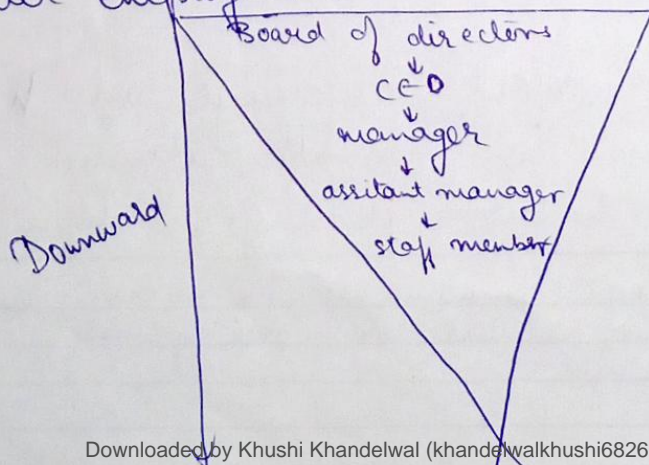 Board of directors
↓
CEO
↓
manager
↓
assitant manager
↓
staff member
Downward
Downloaded by Khushi Khandelwal (khandelwalkhushi6826